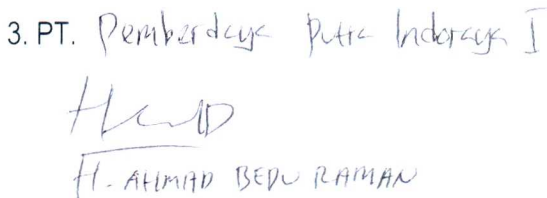 3. PT. Pemberdaya Putra Indoraya I
H. AHMAD BEDU RAMAN